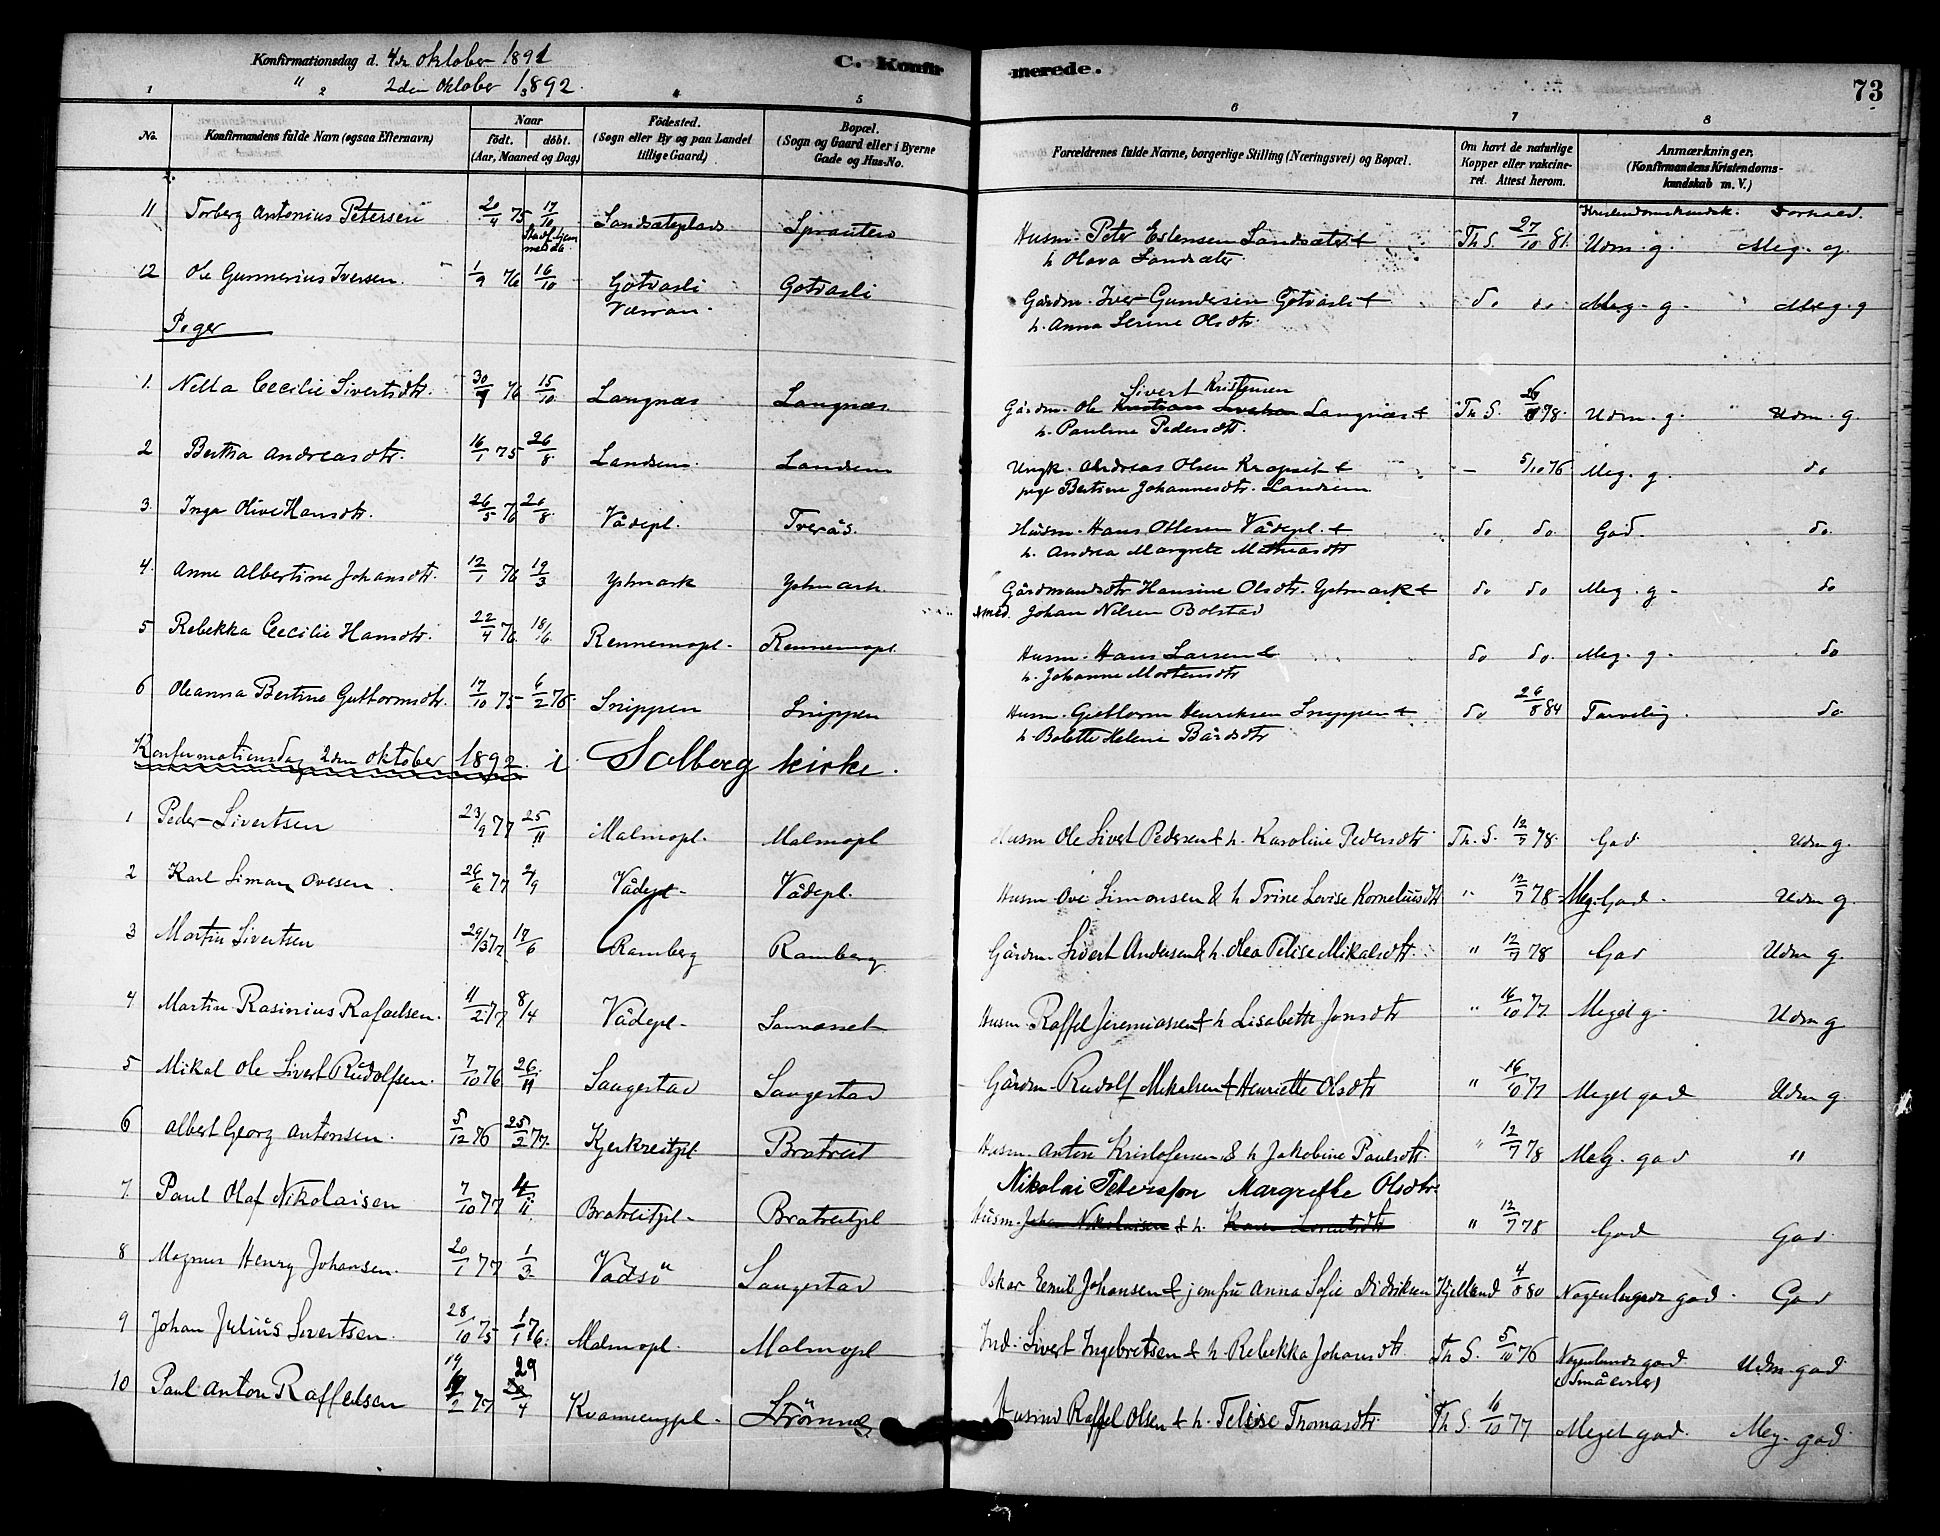 Konfirmationsdag d. 4de Oktober 1891
" 2den Oktober 1892.
C. Konfirmerede. 73
1 2 3 4 5 6 7 8
No. Konfirmandens fulde Navn (ogsaa Efternavn) Naar født. døbt. (Aar, Maaned og Dag) Fødested. (Sogn eller By og paa Landet tillige Gaard) Bopæl. (Sogn og Gaard eller i Byerne Gade og Hus-No. Forældrenes fulde Navne, borgerlige Stilling (Næringsvei) og Bopæl. Om havt de naturlige Kopper eller vakcineret. Attest herom. Anmærkninger. (Konfirmandens Kristendomskundskab m. V.)
Kristendomskundsk. Forhold.
11 Torberg Antonius Petersen 20/4 75 17/10 Landsæteplads Sprauten Husm. Peter Estensen Landsæter & Th S. 27/10 81. Udm. g. Meg. g.
h. Olava Landsæter
12 Ole Gunnerius Iversen. 1/9 76 16/10 Gotvasli Gotvasli Gårdm. Iver Gundersen Gotvasli & do do Meg. g. Meg. g
Værran. h. Anna Serine Olsdtr.
Piger
1. Nella Cecilie Sivertsdtr. 30/9 76 15/10 Langnæs Langnæs. Gårdm. Ole Sivert Kristensen Langnæs & Th S. 78. Udm. g. Udm. g.
h. Pauline Pedersdtr.
2 Bertha Andreasdtr. 16/1 75 26/8 Landsem. Landsem Ungk. Andreas Olsen & - 5/10 76 Meg. g. do
pige Bertine Johannesdtr. Landsem
3. Inga Olive Hansdtr. 26/5 76 20/8 Vådepl. Tverås. Husm. Hans Ottesen Vådepl. & do do. God. do.
h. Andrea Margrete Mathiasdtr
4. Anne Albertine Johansdtr. 12/1 76 19/3 Ystmark Ystmark. Gårdmandsdtr. Hansine Olsdtr. Ystmark & do do Meg. g. do
smed. Johan Nilsen Bolstad
5 Rebekka Cecilie Hansdtr. 22/4 76. 18/6 Rennemspl. Rennemspl. Husm. Hans Larsen & do do. Meg. g. do
h. Johanne Mortensdtr
6 Oleanna Bertine Guttormsdtr. 17/10 75 6/2 76. Snippen Snippen Husm. Guttorm Henriksen Snippen & do 26/8 84 Tarvelig. do.
h. Bolette Helene Bårdsdtr
Konfirmationsdag 2den Oktober 1892. i Solberg kirke.
1 Peder Sivertsen 23/9 77 25/11 Malmopl. Malmopl Husm Ole Sivert Pedersen & h. Karoline Pedersdtr Th. S. 12/7 78. God Udm g.
2 Karl Simon Ovesen. 26/6 77 2/9 Vådepl. Vådepl. Husm. Ove Simonsen & h Trine Lovise Korneliusdtr " 12/7 78. Meg. God. Udm g.
3 Martin Sivertsen 29/3 77 17/6 Ramberg Ramberg Gårdm. Sivert Andersen & h. Olea Pelise Mikalsdtr. " 12/7 78 God Udm g.
4 Martin Rasinius Rafaelsen. 11/2 77 8/4 Vådepl. Husm Raffel Jeremiassen & h Lisabeth Jonsdtr " 16/10 77 Meget g. Udm g
5 Mikal Ole Sivert Rudolfsen. 7/10 76 26/11 Saugestad Saugestad Gårdm. Rudolf Mikalsen & Henriette Olsdtr " 16/10 77 Meget god Udm g.
6 Albert Georg Antonsen. 5/12 76 25/2 77. Kjerkreitpl Bratreit Husm. Anton Kristofersen & h Jakobine Paulsdtr. " 12/7 78 Meg. god "
Nikolai Petersson Margrethe Olsdtr.
7. Paul Olaf Nikolaisen 7/10 77 4/11. Bratreitpl. Bratreitpl Husm. Johan Nikolaisen & h. Karen Lorentsdtr " 12/7 78 God God
8 Magnus Henry Johansen. 20/1 77 1/3. Vadsö Saugestad Oskar Emil Johansen & jomfru Anna Sofie Didriksen Kjelland 4/8 80 Nogenlunde god. God
9 Johan Julius Sivertsen. 28/10 75 1/1 76. Malmopl. Malmopl Ind. Sivert Ingebretsen & h. Rebekka Johansdtr Th S. 5/10 76 Nogenlunde god Udm. god
10 Paul Anton Raffelsen 19/2 77 29/4 Kvammenpl. Strömnes Husmd Raffel Olsen & h. Telise Thomasdtr. Th S. 16/10 77 Meget god. Meg. god